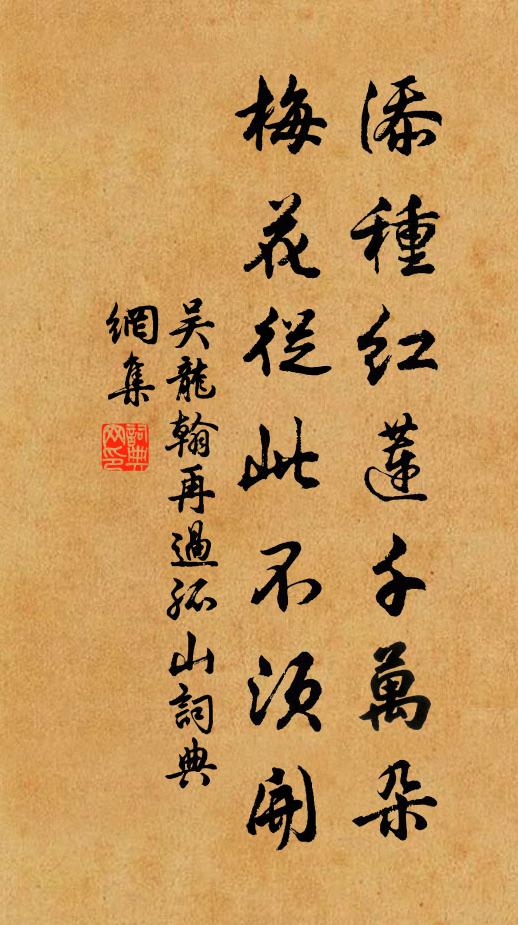 添種紅蓮千萬朵
梅花從此不須開
吳龍翰再過孤山詞典
網集
詞典
网印